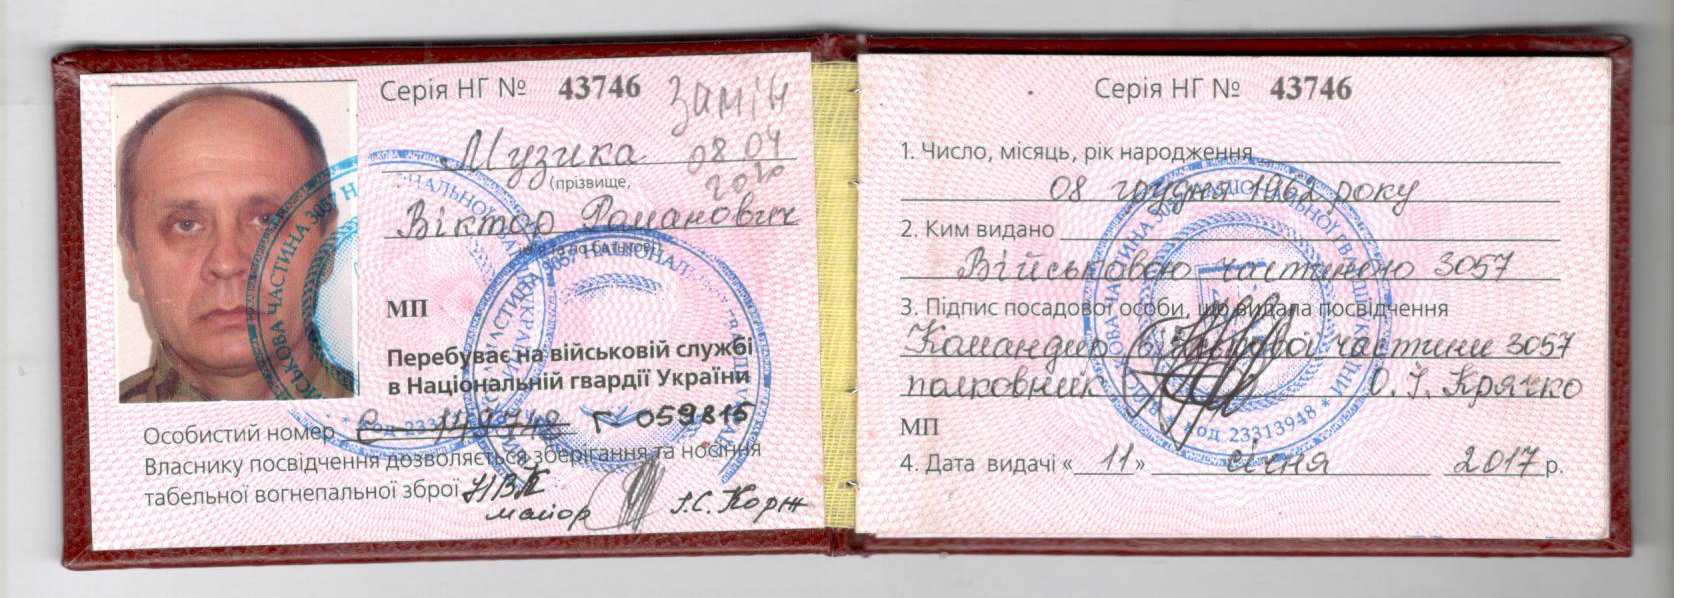 Серія НГ № 43746
Замін
08 04
2020
Музика
(прізвище,
Віктор Романович
ім'я та по батькові)
МП
Перебуває на військовій службі
в Національній гвардії України
Особистий номер Г 059815
Власнику посвідчення дозволяється зберігання та носіння
табельної вогнепальної зброї НВК
майор І.С. Корж
Серія НГ № 43746
1. Число, місяць, рік народження
08 грудня 1962 року
2. Ким видано
Військовою частиною 3057
3. Підпис посадової особи, що видала посвідчення
Командир військової частини 3057
полковник О. І. Крячко
МП
код 23313948
4. Дата видачі « 11 » січня 2017 р.